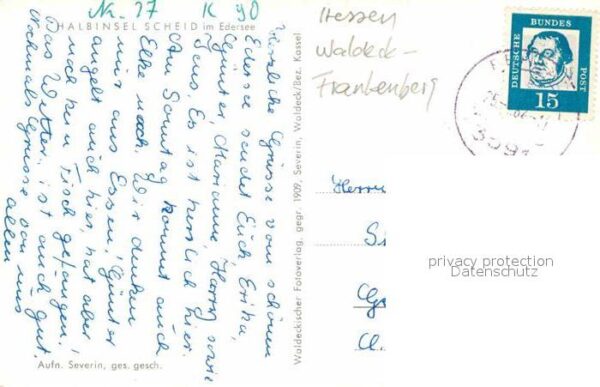 Nr. 37 K 90
HALBINSEL SCHEID im Edersee
Herzliche Grüsse vom schönen
Edersee sendet Euch Erika,
Günter, Marianne, Harry sowie
Jens. Es ist herrlich hier.
Am Sonntag kommt auch
Elke nach. Wir denken
mir aus Essen, Günter
angelt auch hier, hat aber
noch kein Fisch gefangen.
Das Wetter ist auch gut.
Nochmals Grüsse von uns
allen
Aufn. Severin, ges. gesch.
Waldeckischer Fotoverlag, gegr. 1909, Severin, Waldeck/Bez. Kassel
Hessen
Waldeck-
Frankenberg
DEUTSCHE BUNDES POST
15
3591
Herrn
privacy protection
Datenschutz